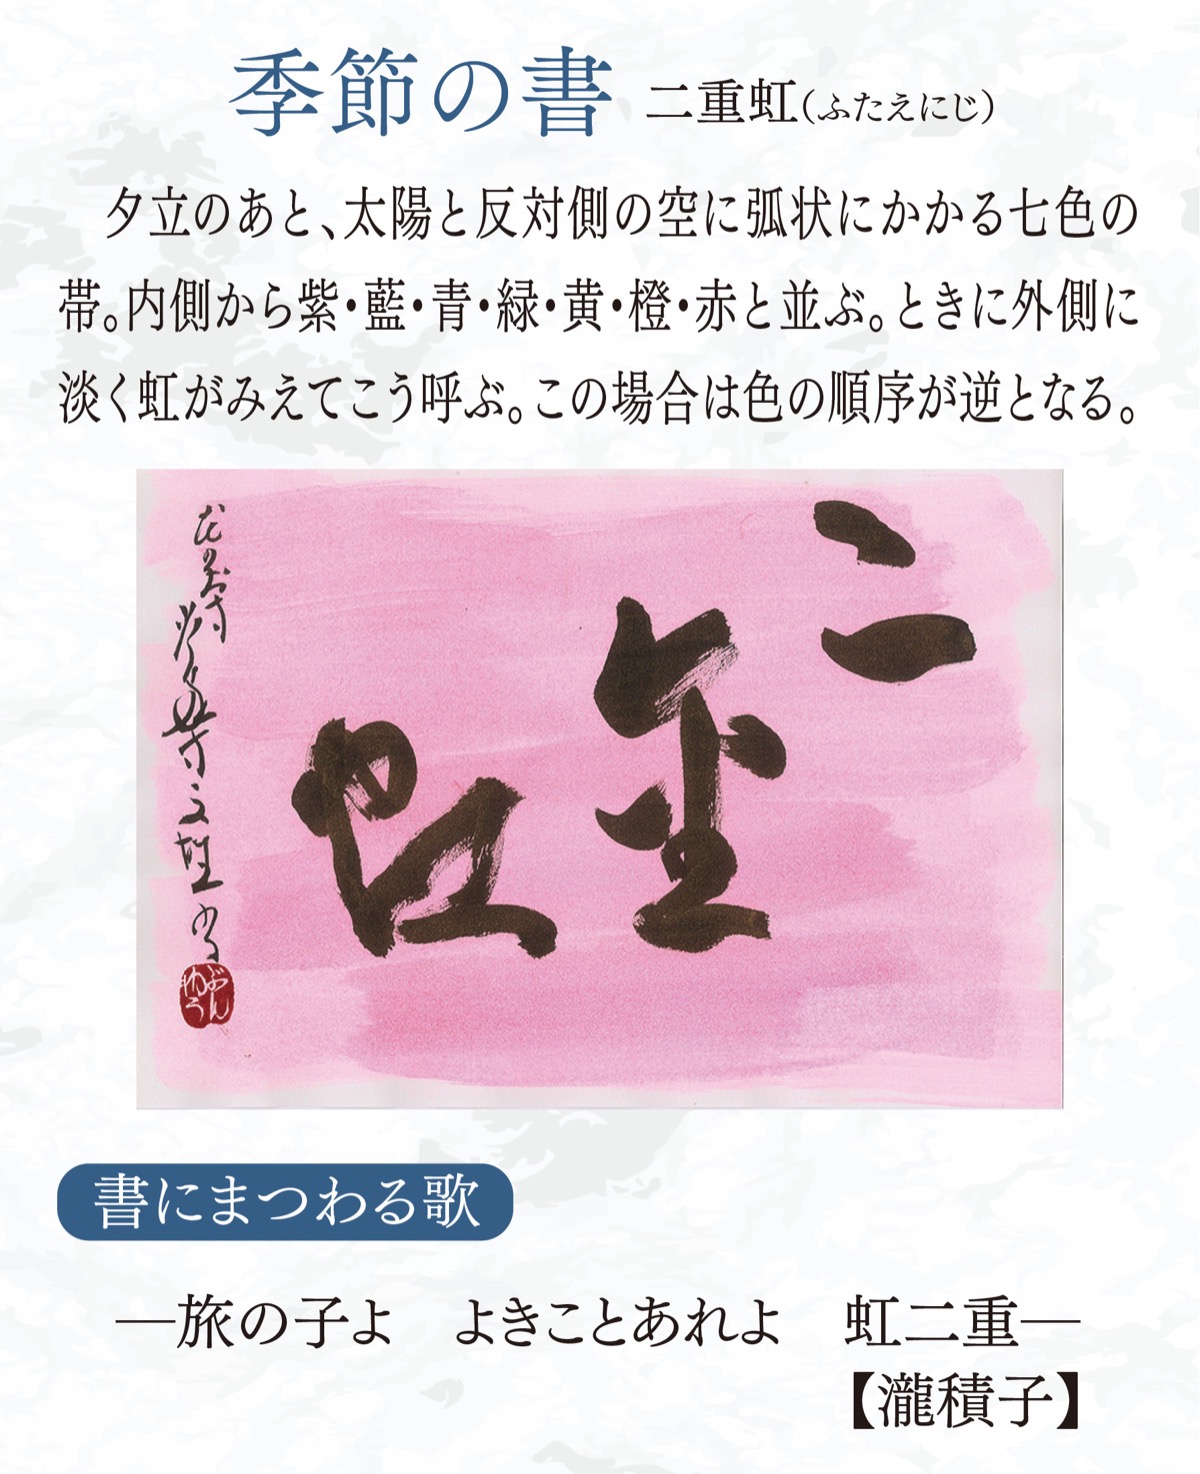 季節の書 二重虹(ふたえにじ)
夕立のあと、太陽と反対側の空に弧状にかかる七色の
帯。内側から紫・藍・青・緑・黄・橙・赤と並ぶ。ときに外側に
淡く虹がみえてこう呼ぶ。この場合は色の順序が逆となる。
二重虹
ぶん
ゆう
書にまつわる歌
―旅の子よ　よきことあれよ　虹二重―
【瀧積子】